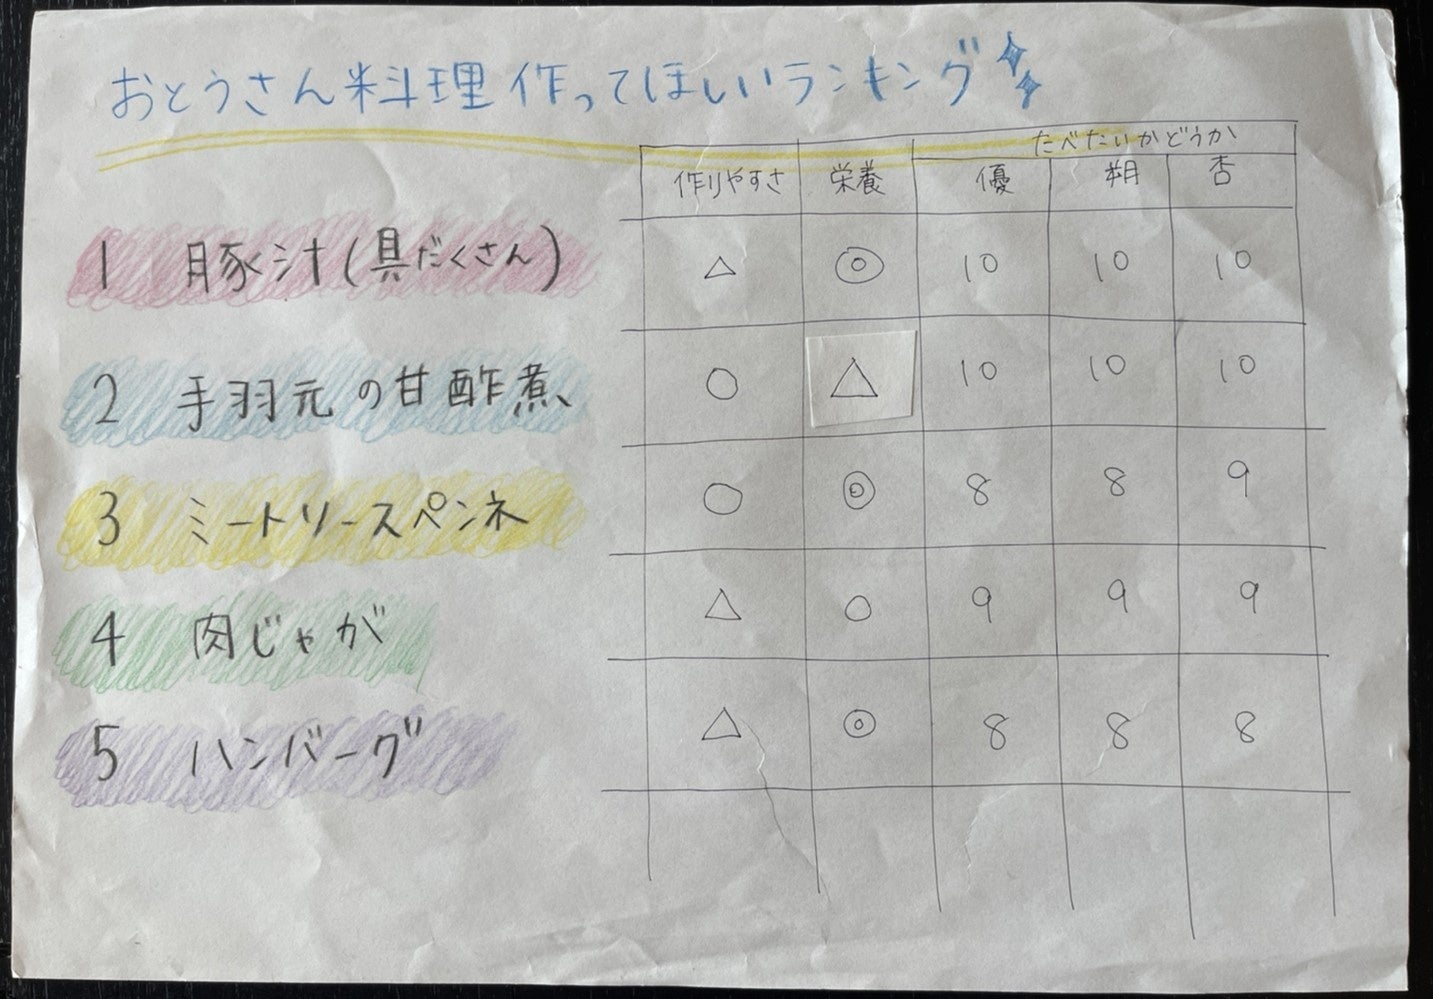 おとうさん料理作ってほしいランキング
たべたいかどうか
作りやすさ 栄養 優 朔 杏
1 豚汁(具だくさん) △ ◎ 10 10 10
2 手羽元の甘酢煮、 ○ △ 10 10 10
3 ミートソースペンネ ○ ◎ 8 8 9
4 肉じゃが △ ○ 9 9 9
5 ハンバーグ △ ◎ 8 8 8